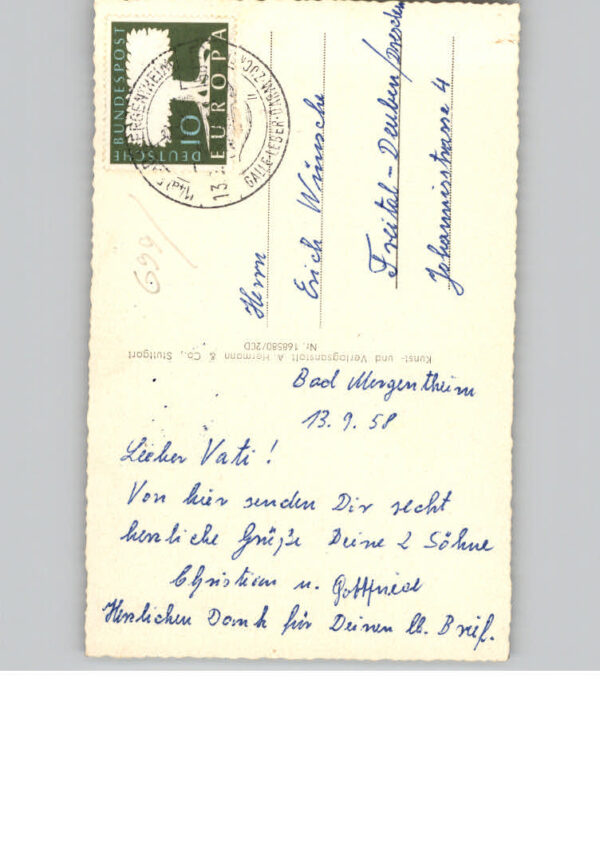 DEUTSCHE BUNDESPOST
10
EUROPA
(14a) BAD MERGENTHEIM
13
GALLE-LEBER-DARM-ZUCK
699/
Herrn
Erich Wünsche
Freital-Deuben/Dresden
Johannisstrasse 4
Kunst- und Verlagsanstalt A. Hermann & Co., Stuttgart
Nr. 168580/2CD
Bad Mergentheim
13.9.58
Lieber Vati!
Von hier senden Dir recht
herzliche Grüße Deine 2 Söhne
Christian u. Gottfried
Herzlichen Dank für Deinen lb. Brief.